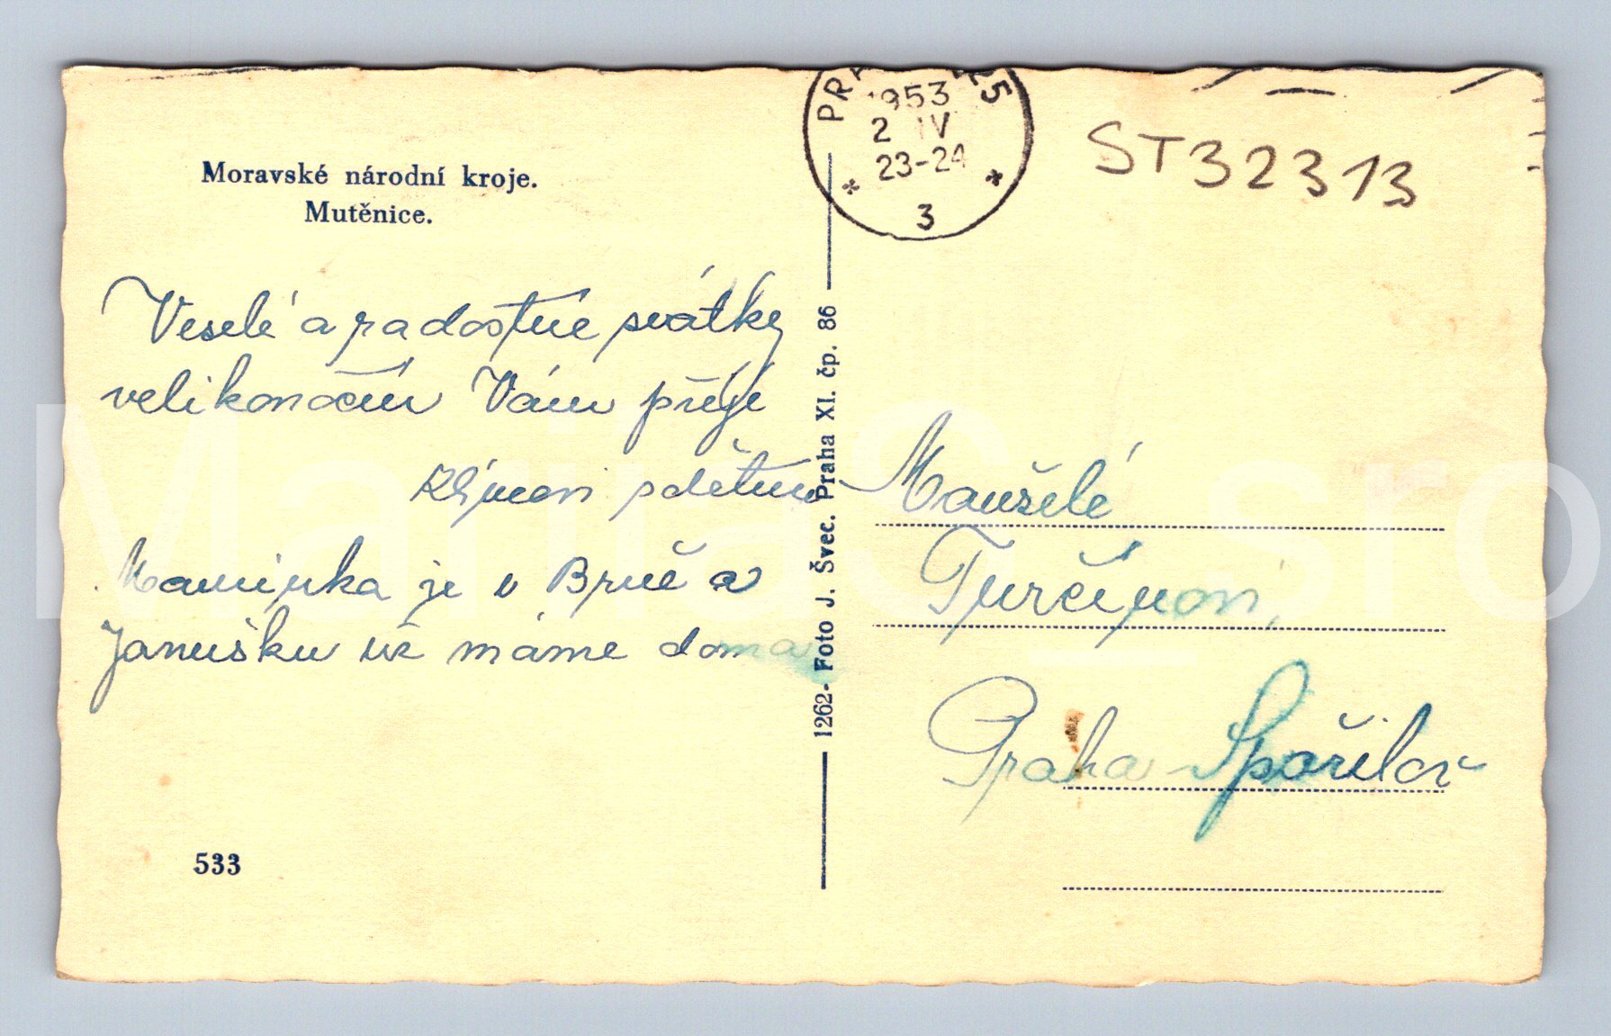 Moravské národní kroje.
Mutěnice.
Veselé a radostné svátky
velikonoční Vám přeje
s dětmi
Maminka je v Brně a
Janušku už máme doma
533
1262- Foto J. Švec. Praha XI. čp. 86
PRAHA 25
1953
2 IV
23-24
* 3 *
ST32313
Manželé
Turčínovi,
Praha - Spořilov